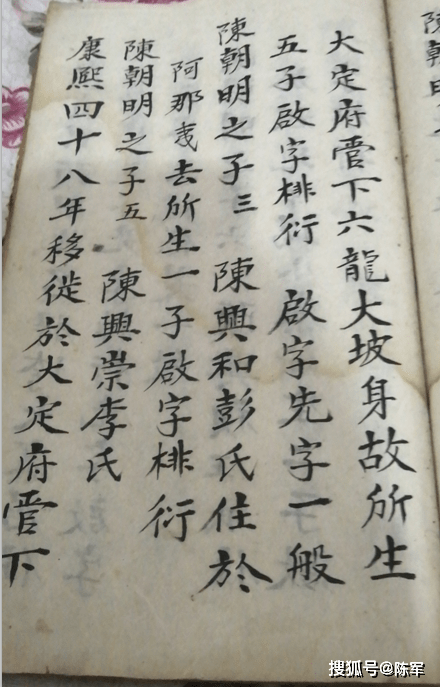 陳朝明
大定府管下六龍大坡身故所生
五子啟字棑衍 啟字先字一般
陳朝明之子三 陳興和彭氏住於
阿那夷去所生一子啟字棑衍
陳朝明之子五 陳興崇李氏
康熙四十八年移徙於大定府管下
搜狐号@陈军